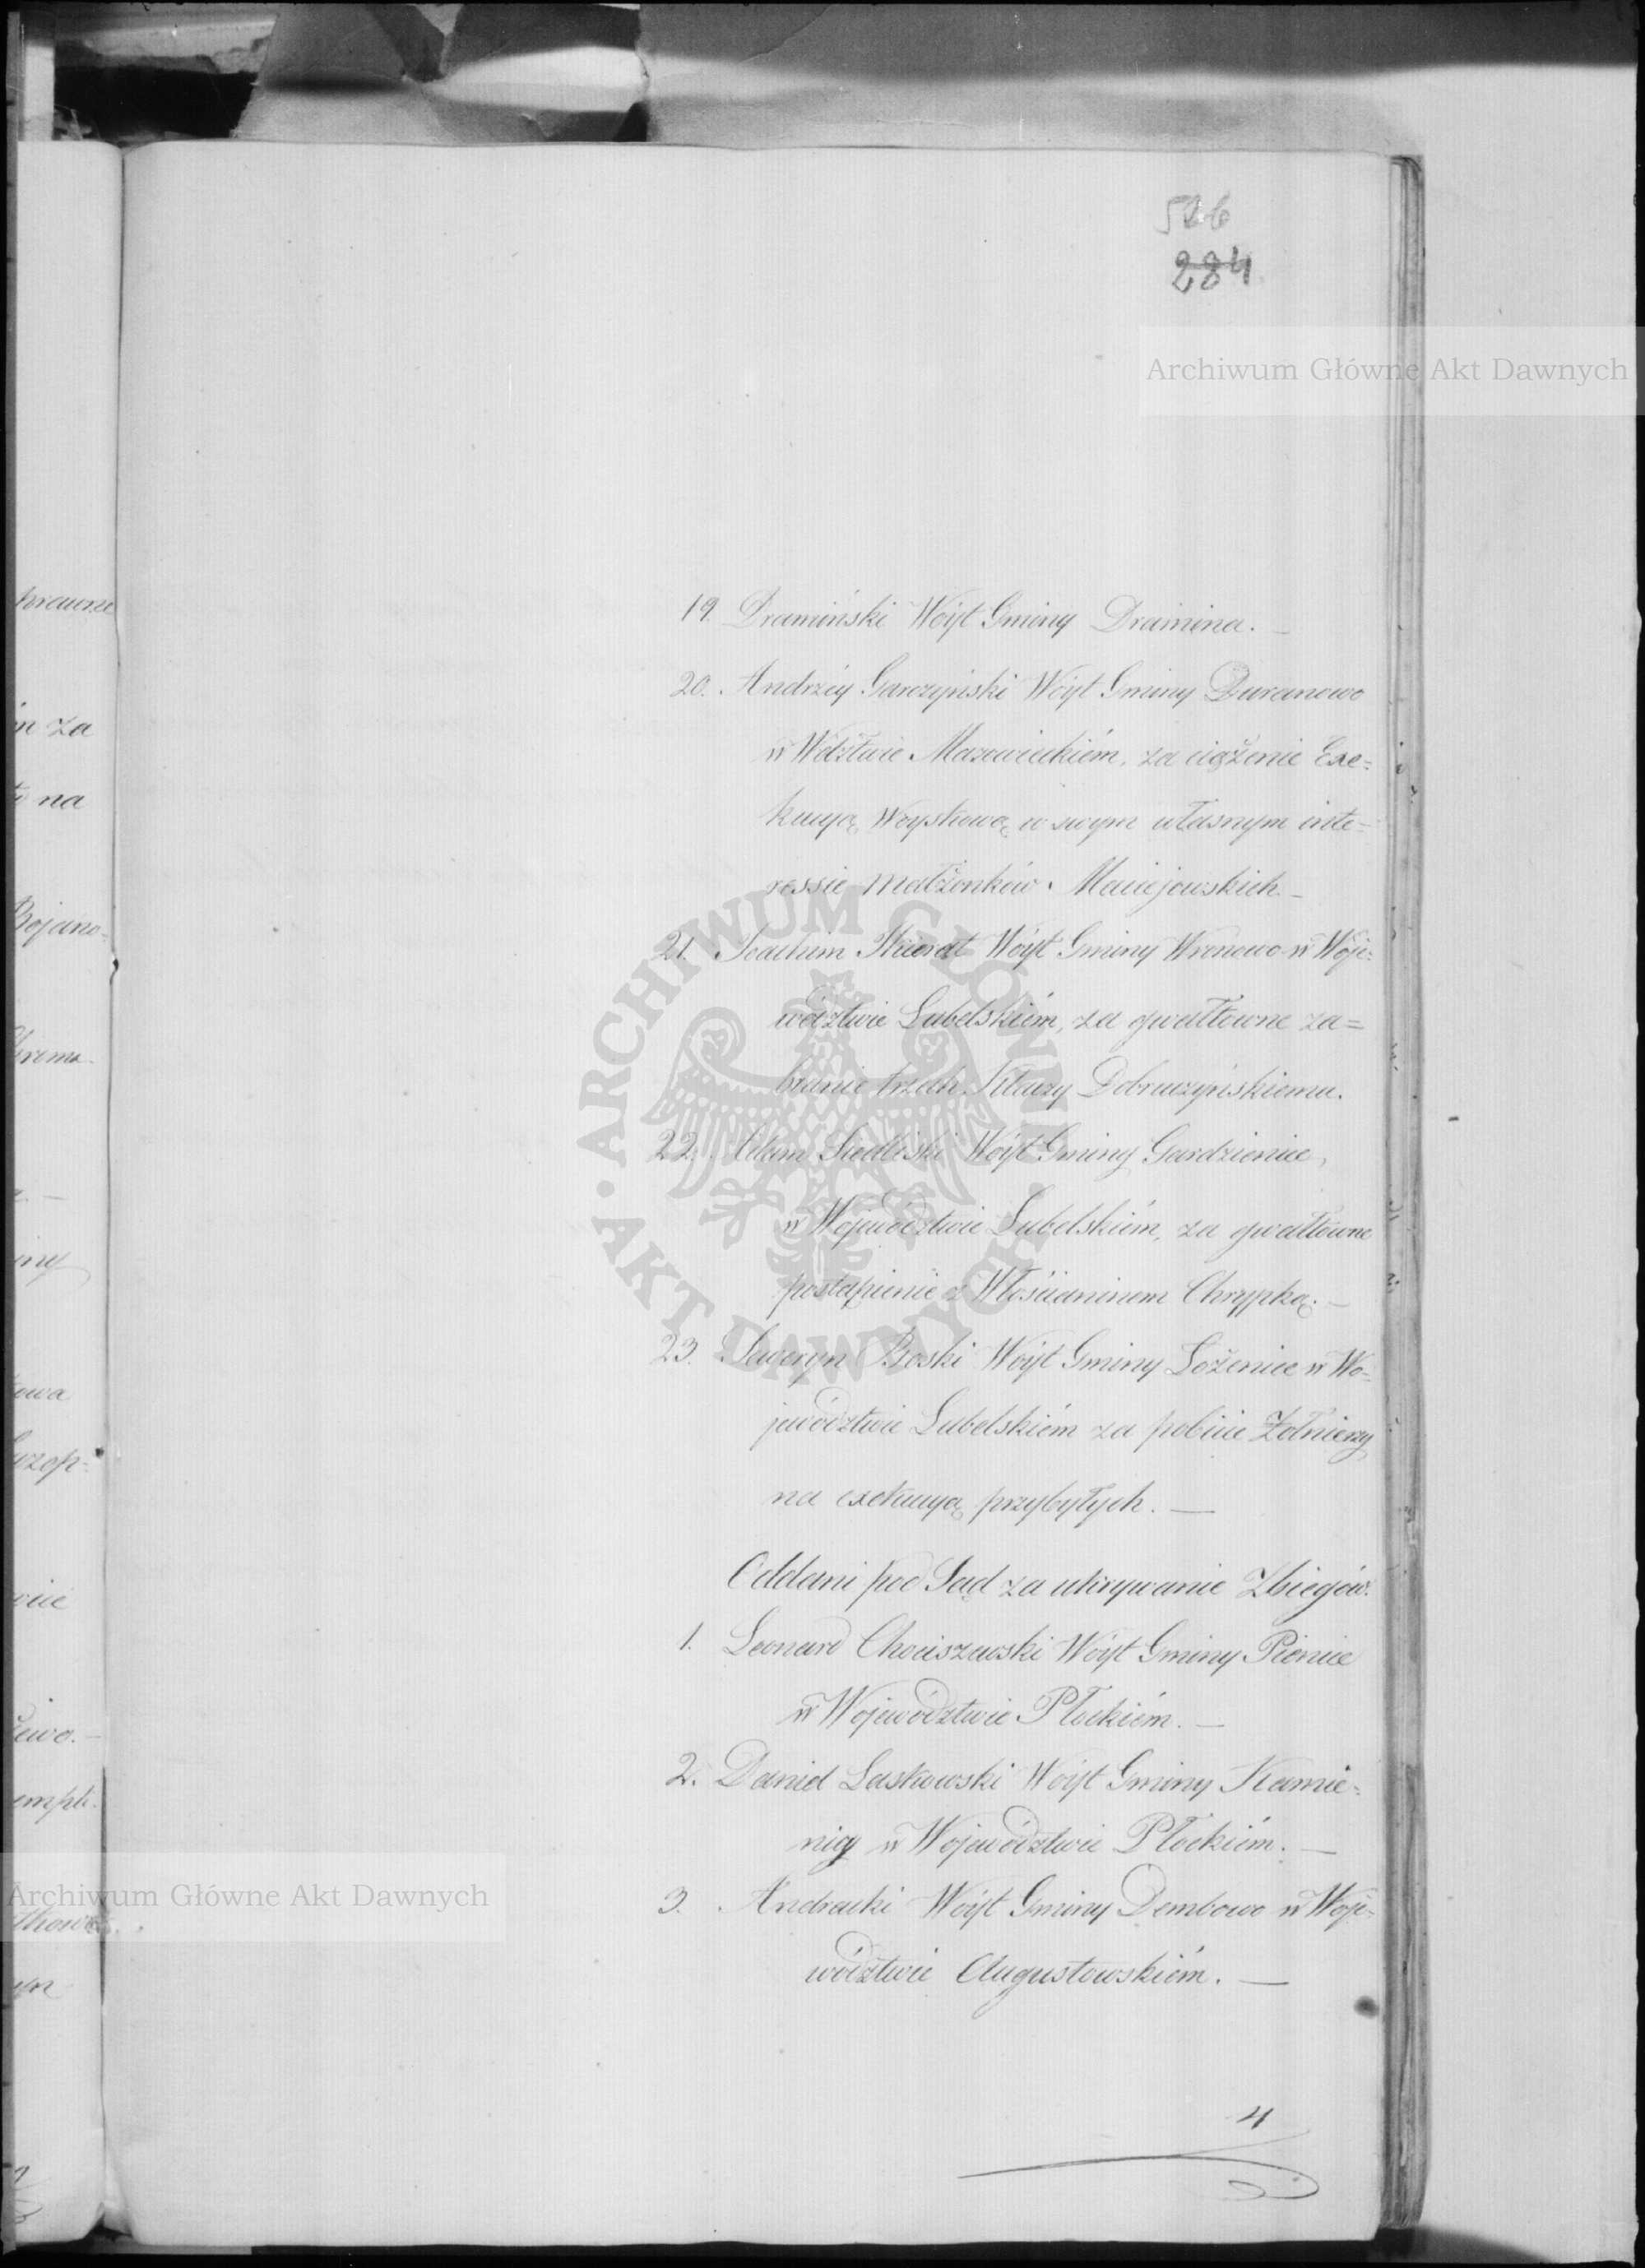 526
284
Archiwum Główne Akt Dawnych
19. Dramiński Wóyt Gminy Dramina. —
20. Andrzéy Garczyński Wóyt Gminy Duranowo
w Wdztwie Mazowieckiém, za ciążenie Exe=
kucyą Woyskową w swym własnym inte=
ressie małżonków Maciejowskich. —
21. Joachim Wóyt Gminy Wronowo w Woje=
wództwie Lubelskiém, za gwałtowne za=
branie trzech Dobruczyńskiemu.
22. Adam Siedliski Wóyt Gminy Gardzienice,
w Województwie Lubelskiém, za gwałtowne
postąpienie z Włościaninem Chrypką. —
23. Seweryn Boski Wóyt Gminy Łożenice w Wo=
jewództwie Lubelskiém za pobicie Żołnierzy
na exekucyą przybyłych. —
Oddani pod Sąd za ukrywanie Zbiegów.
1. Leonard Chociszewski Wóyt Gminy Pienice
w Województwie Płockiém. —
2. Daniel Laskowski Wóyt Gminy Kamie=
nicy w Województwie Płockiém. —
3. Andracki Wóyt Gminy Dembowo w Woje=
wództwie Augustowskiém. —
4
za
na
Bojano=
iny
owa
ewo. —
Archiwum Główne Akt Dawnych
ARCHIWUM GŁÓWNE AKT DAWNYCH